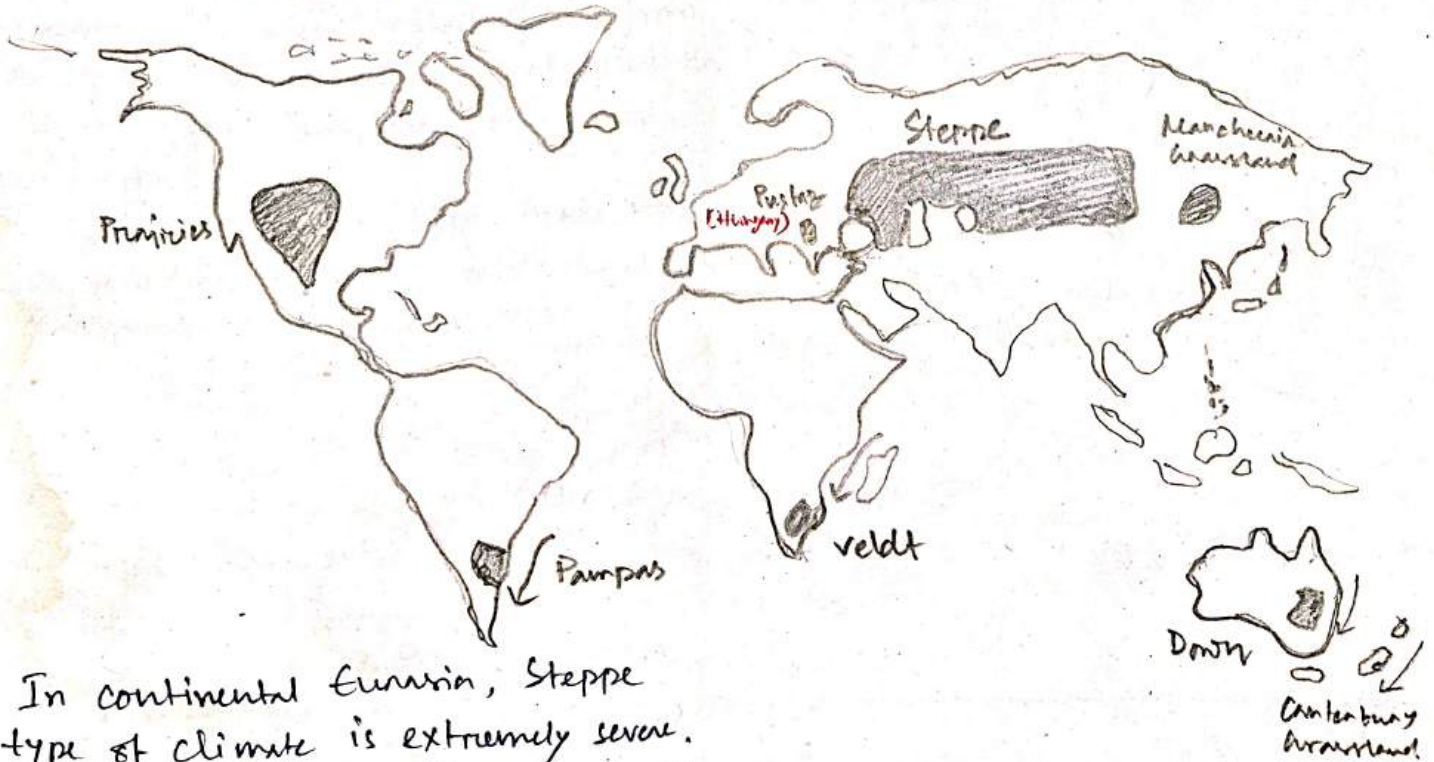 Steppe
Manchuria
Grassland
Pustaz
(Hungary)
Prairies
Pampas
veldt
Down
Canterbury
Grassland
In continental Eurasia, Steppe
type of climate is extremely severe.